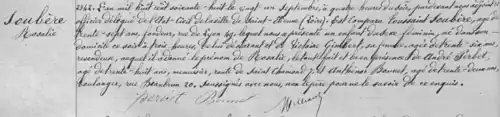 Soubère
Rosalie
2942. L'an mil huit cent soixante-huit le vingt un septembre, à quatre heures du soir, pardevant nous adjoint
officier délégué de l'État-Civil de la ville de Saint-Étienne (Loire), Est Comparu Toussaint Soubère, agé
trente-sept ans, fondeur, rue de Lyon 49, lequel nous a présenté un enfant du sexe féminin, né dans son
domicile ce soir à trois heures, de lui déclarant et de Victoire Gimbert, sa femme agée de trente-six ans,
revendeuse, auquel il a donné le prénom de Rosalie, le tout fait et en présence de André
agé de trente-huit ans, menuisier, route de Saint Chamond, et Anthelme Bonnet, agé de trente-deux ans,
boulanger, rue Beaubrun 20. Soussignés avec nous, non le père pour ne le savoir de ce enquis.
Bonnet